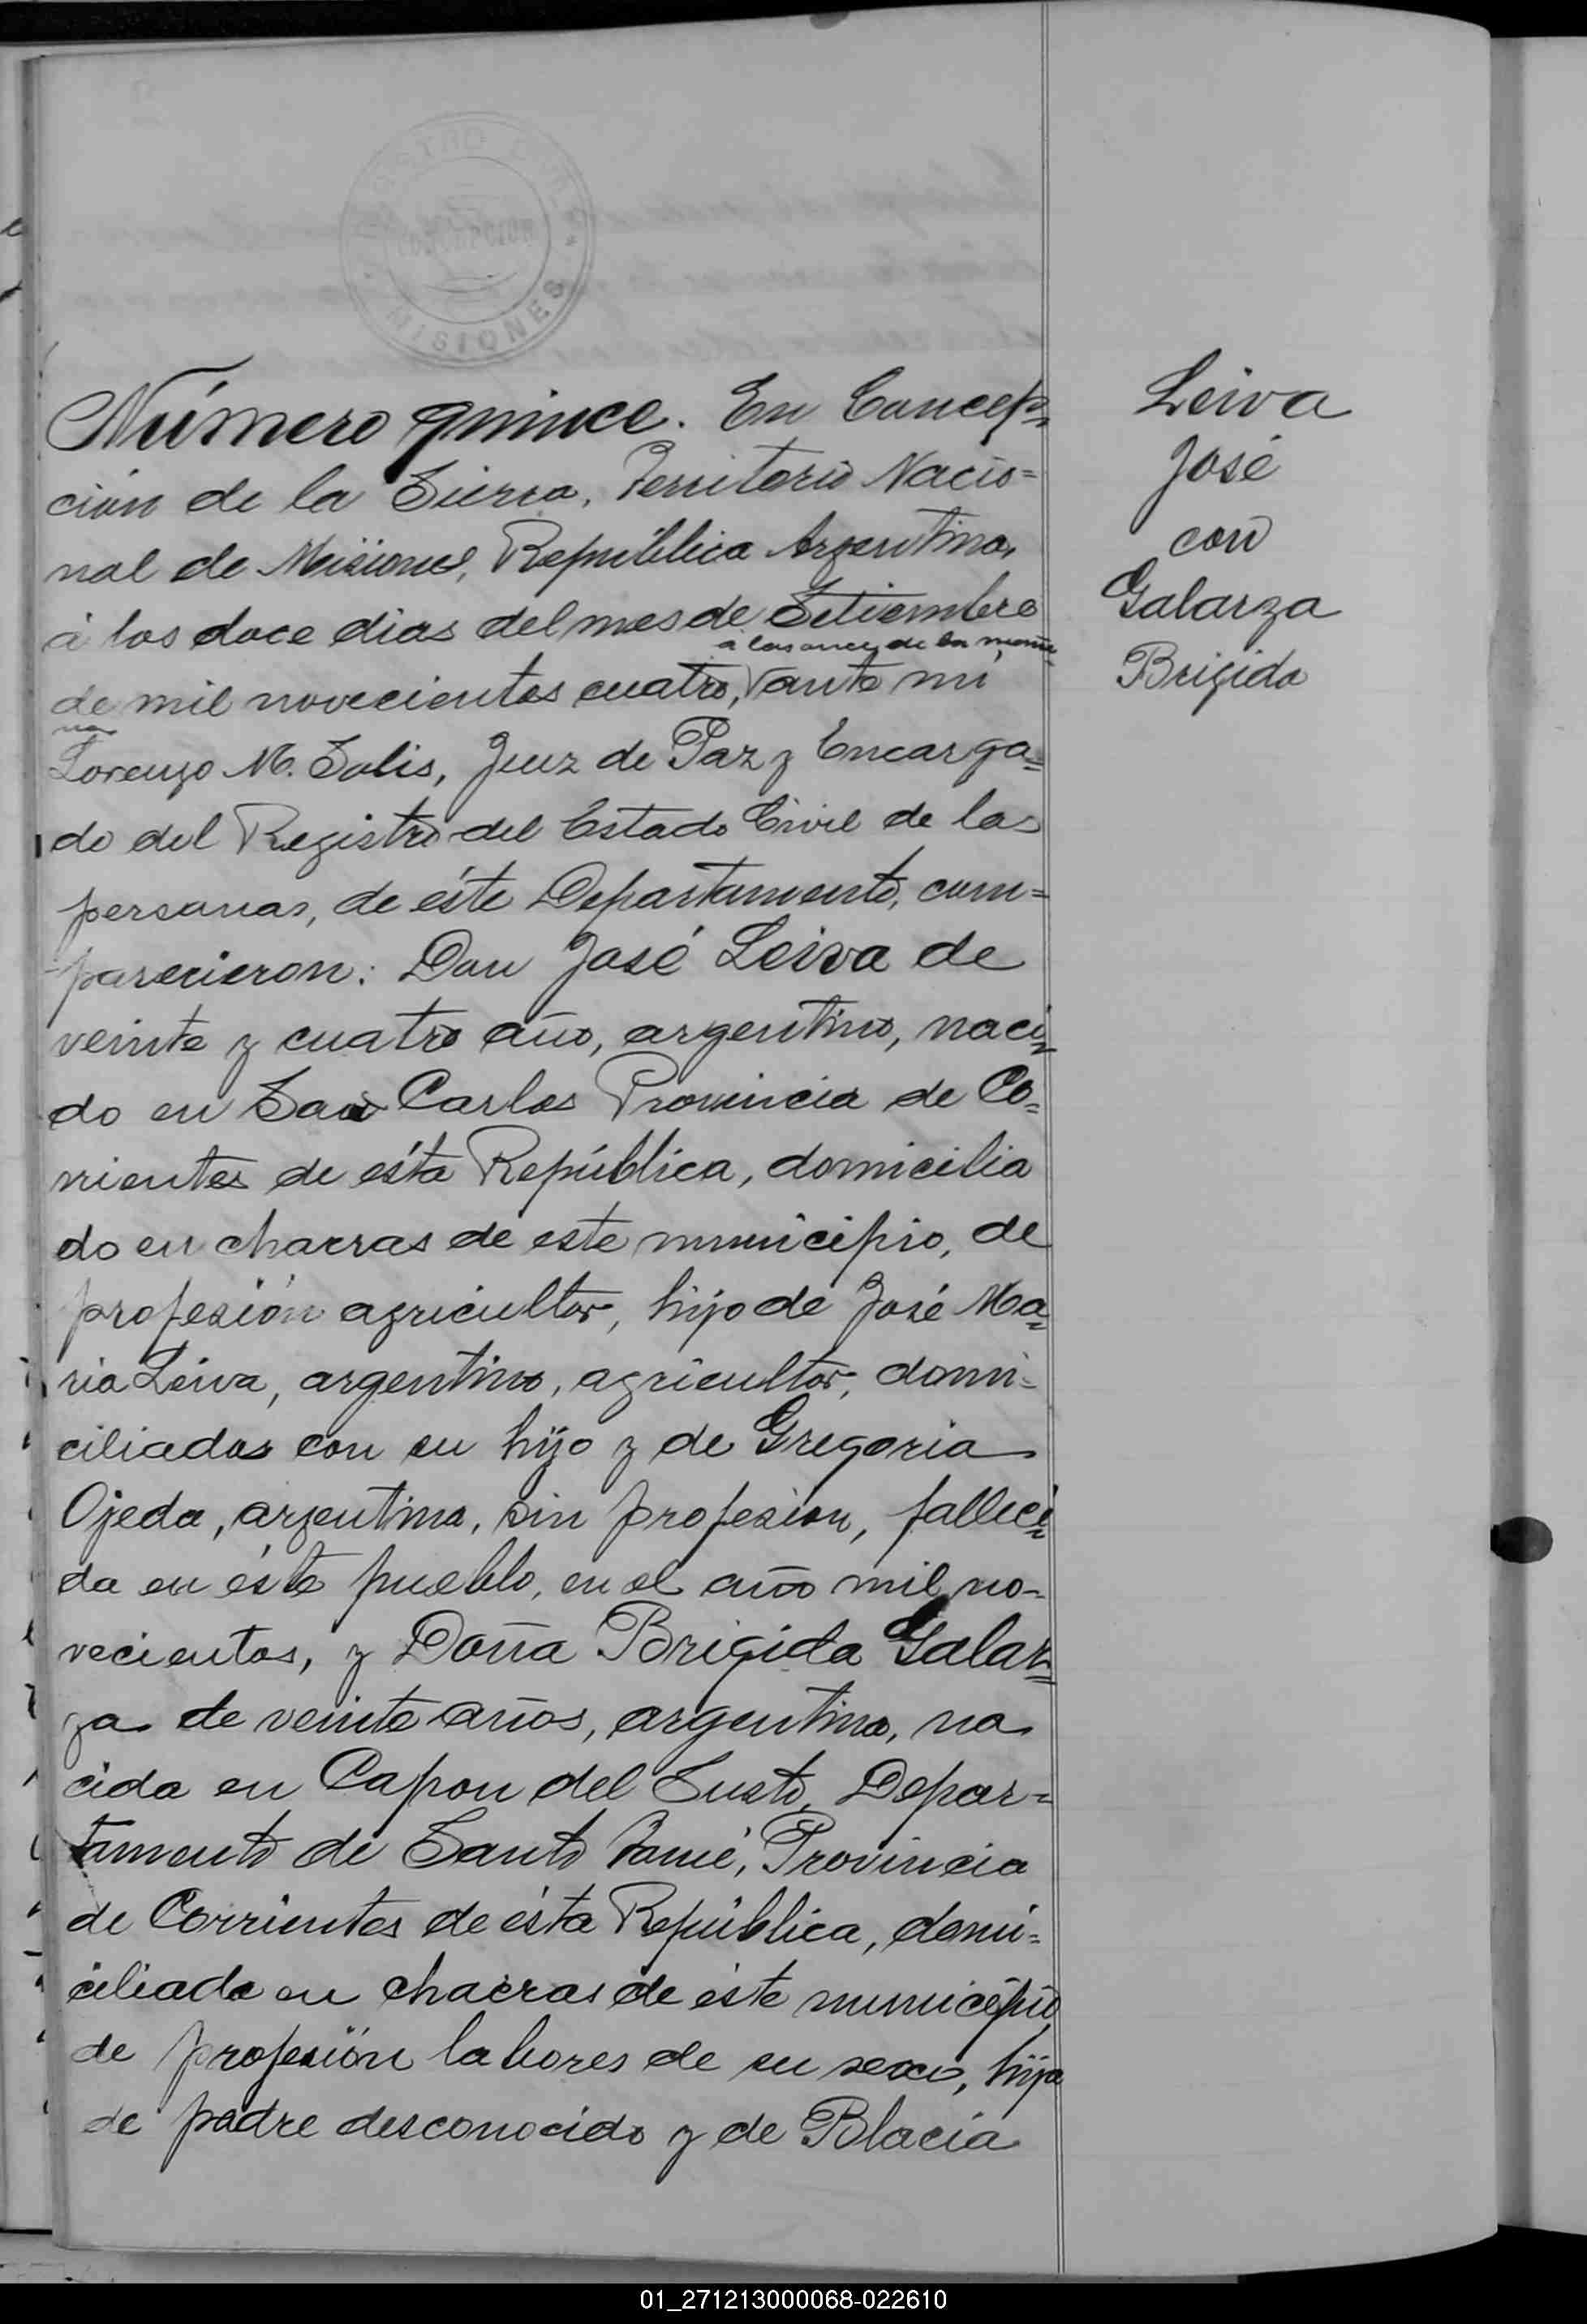 REGISTRO CIVIL
CONCEPCION
* MISIONES *
Número quince. En Concep=
ción de la Sierra, Territorio Nacio=
nal de Misiones, República Argentina,
á los doce dias del mes de Setiembre
á las once, de la maña=
de mil novecientos cuatro, ante mi
na
Lorenzo M. Solis, Juez de Paz y Encarga=
do del Registro del Estado Civil de las
personas, de éste Departamento, com=
parecieron: Don José Leiva de
veinte y cuatro año, argentino, naci=
do en San Carlos Provincia de Co=
rrientes de ésta República, domicilia
do en chacras de este municipio, de
profesión agricultor, hijo de José Ma=
ria Leiva, argentino, agricultor, domi=
ciliados con su hijo y de Gregoria
Ojeda, argentina, sin profesion, falleci=
da en éste pueblo, en el año mil no=
vecientos, y Doña Brigida Galar=
za de veinte años, argentina, na
cida en Capon del Susto, Depar=
tamento de Santo Tomé, Provincia
de Corrientes de ésta República, domi=
ciliada en chacras de éste municipio,
de profesión labores de su sexo, hija
de padre desconocido y de Blacia
Leiva
José
con
Galarza
Brigida
01_271213000068-022610